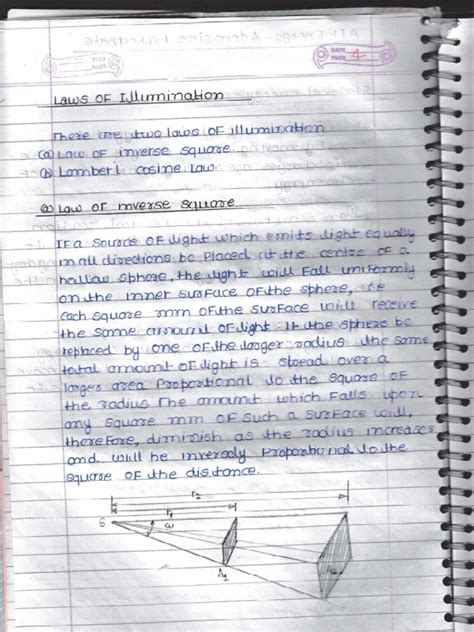 DATE
PAGE 4
Laws of Illumination
There are two laws of illumination
(a) Law of inverse square
(b) Lambert cosine law
(a) Law of inverse square
If a source of light which emits light equally
in all directions be placed at the centre of a
hallow sphere, the light will fall uniformly
on the inner surface of the sphere, i.e
each square mm of the surface will receive
the same amount of light. If the sphere be
replaced by one of the larger radius the same
total amount of light is spread over a
larger area proportional to the square of
the radius The amount which falls upon
any square mm of such a surface will,
therefore, diminish as the radius increases
and will be inversly proportional to the
square of the distance.
r2
r1
S
ω
A1
A2